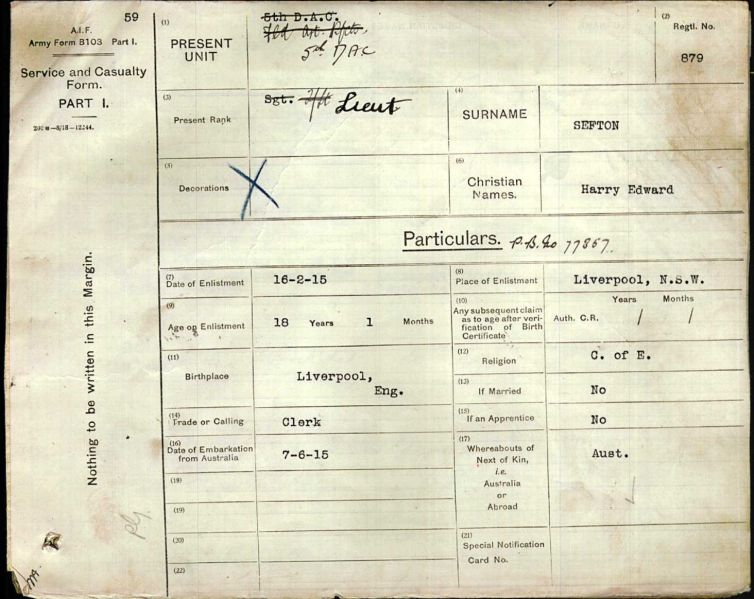 59
A.I.F.
Army Form B103 Part I.
Service and Casualty
Form.
PART I.
Nothing to be written in this Margin.
(1)
PRESENT
UNIT
5th D.A.C.
5th DAC
(2)
Regtl. No.
879
(3)
Present Rank
Sgt. Lieut
(4)
SURNAME
SEFTON
(5)
Decorations
X
(6)
Christian
Names.
Harry Edward
Particulars. P.B. No 77857
(7)
Date of Enlistment
16-2-15
(8)
Place of Enlistment
Liverpool, N.S.W.
(9)
Age on Enlistment
18 Years 1 Months
(10)
Any subsequent claim
as to age after veri-
fication of Birth
Certificate
Years Months
Auth. C.R. / /
(11)
Birthplace
Liverpool,
Eng.
(12)
Religion
C. of E.
(13)
If Married
No
(14)
Trade or Calling
Clerk
(15)
If an Apprentice
No
(16)
Date of Embarkation
from Australia
7-6-15
(17)
Whereabouts of
Next of Kin,
i.e.
Australia
or
Abroad
Aust.
(18)
(19)
(20)
(21)
Special Notification
Card No.
(22)